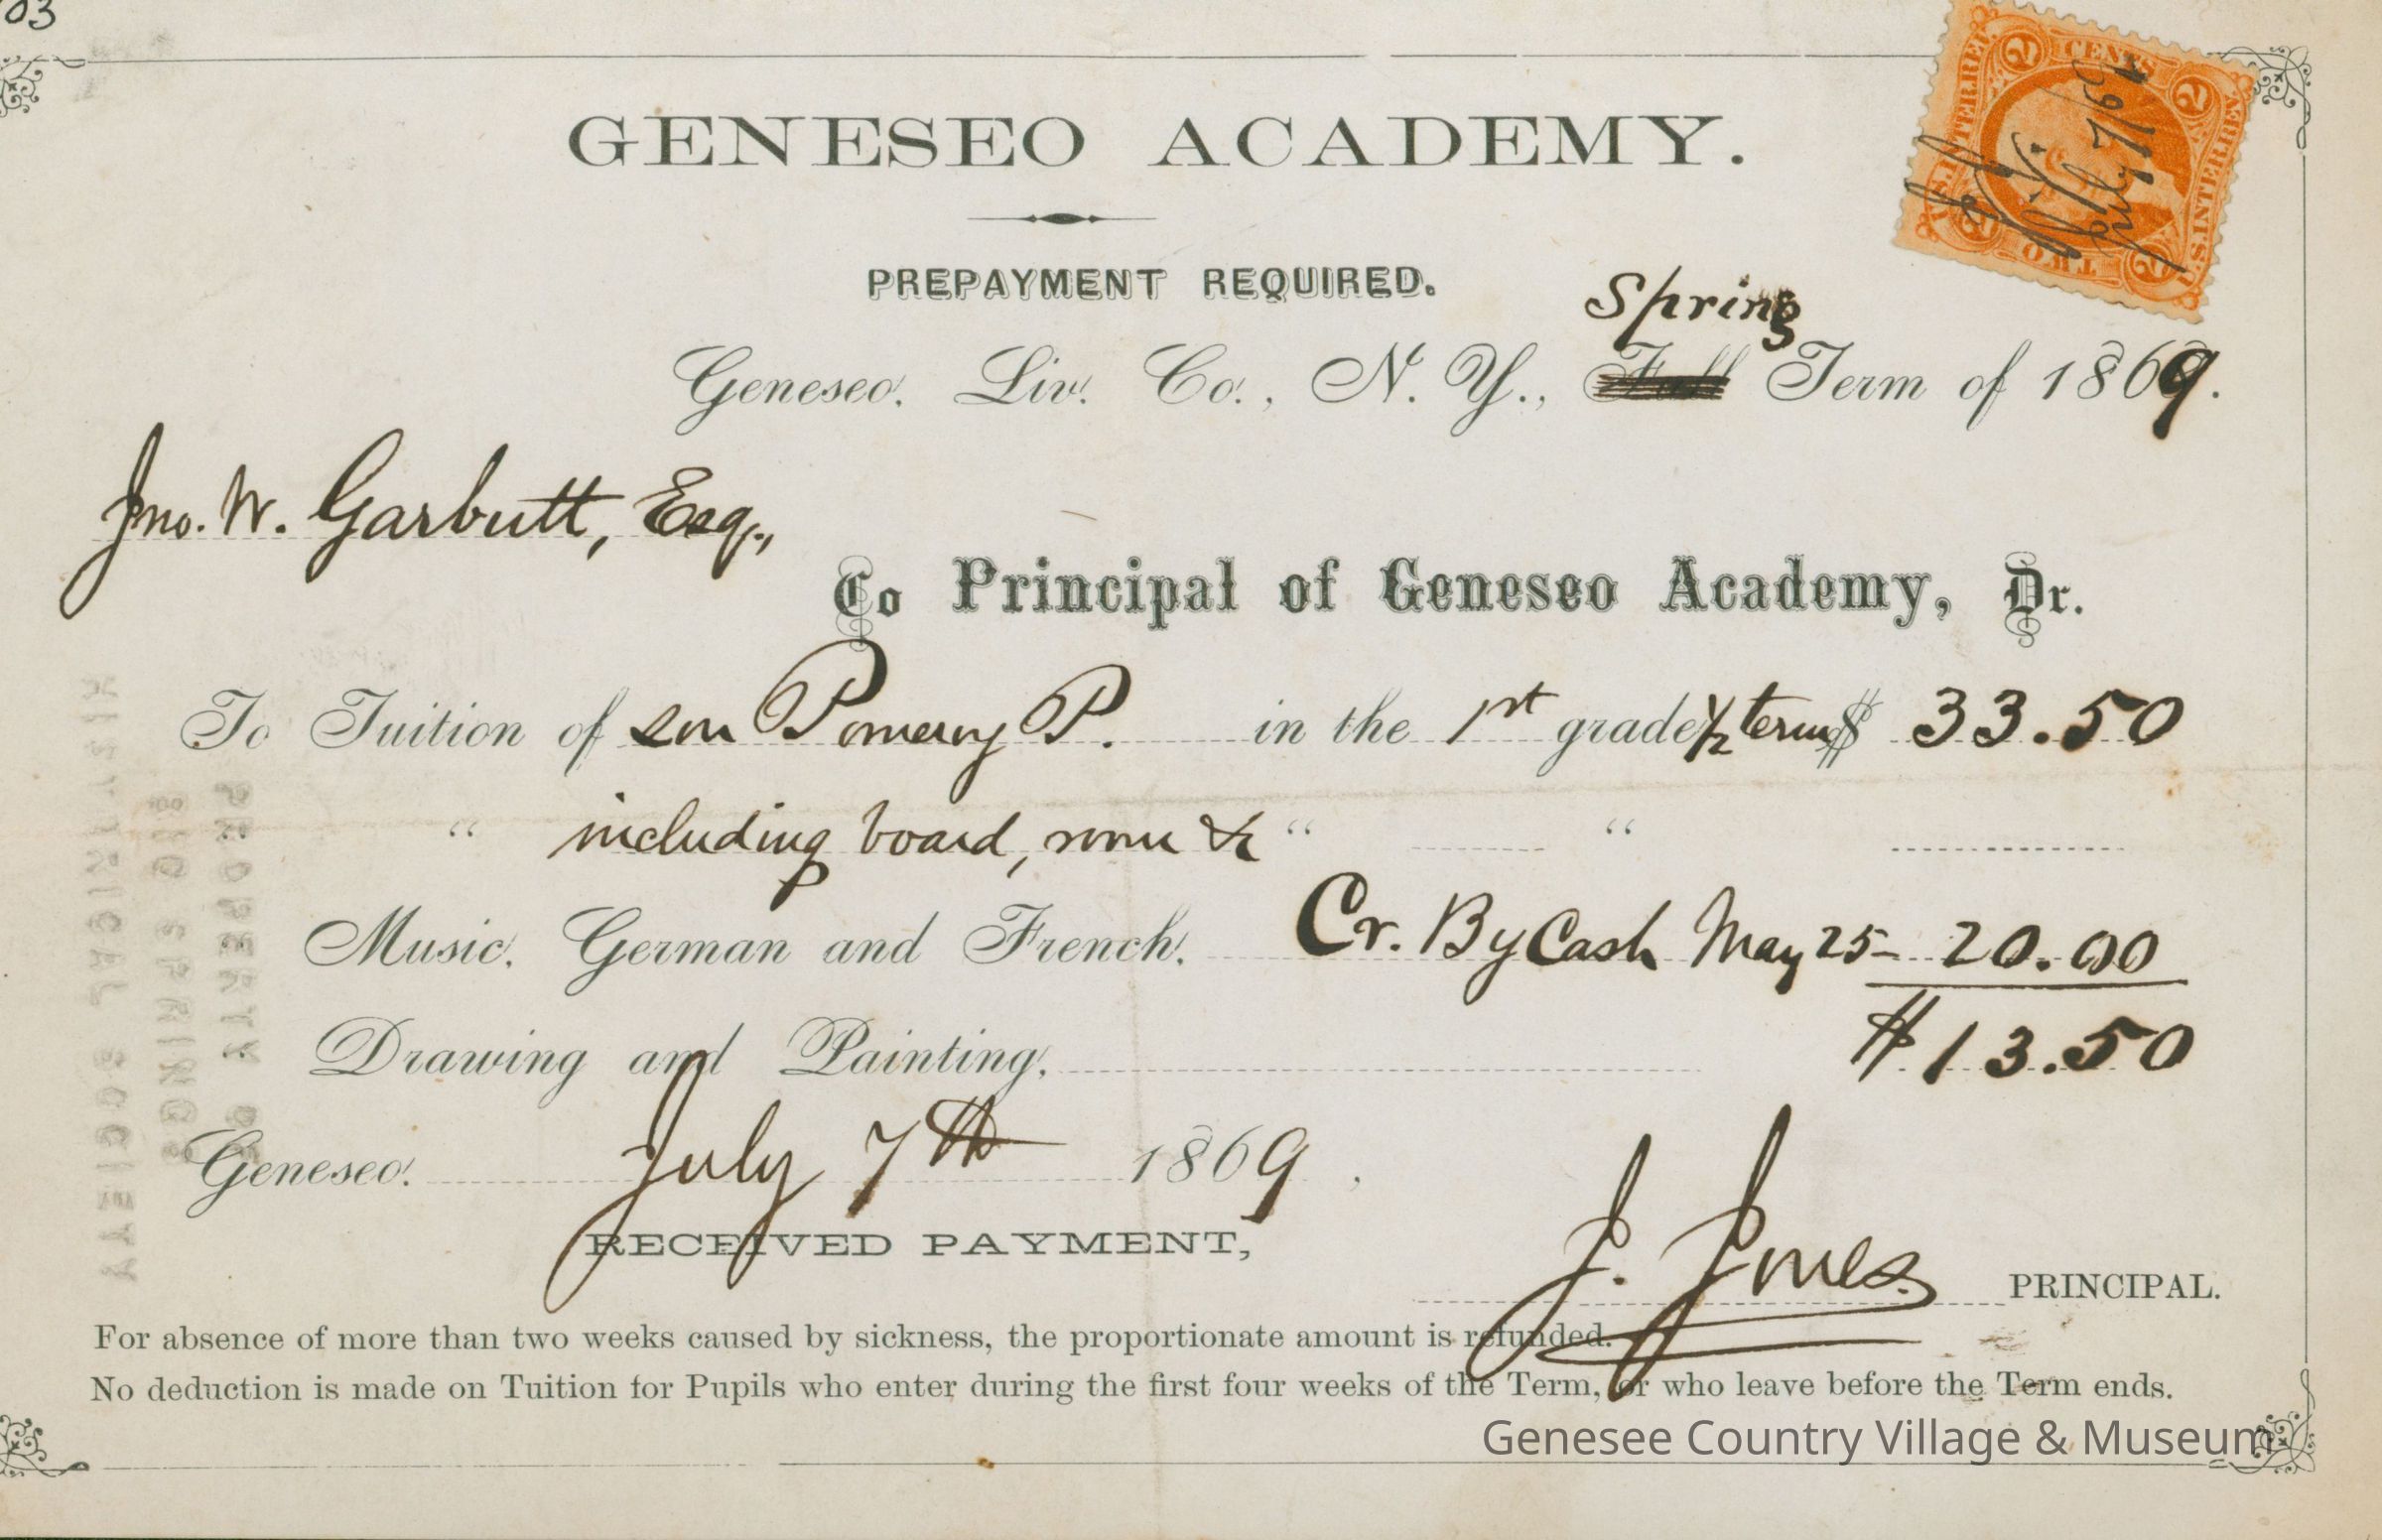 03
U.S. INTER. REV.
2 CENTS 2
U.S. INTER. REV.
2 TWO 2
July 7/69
GENESEO ACADEMY.
PREPAYMENT REQUIRED.
Spring
Geneseo, Liv. Co., N. Y., Fall Term of 1869.
Jno. W. Garbutt, Esq.,
To Principal of Geneseo Academy, Dr.
To Tuition of son Pomeroy P. in the 1st grade ½ term $ 33.50
" including board, room & " "
Music, German and French, Cr. By Cash May 25 - 20.00
Drawing and Painting, $13.50
Geneseo, July 7th 1869,
RECEIVED PAYMENT,
J. Jones. PRINCIPAL.
For absence of more than two weeks caused by sickness, the proportionate amount is refunded.
No deduction is made on Tuition for Pupils who enter during the first four weeks of the Term, or who leave before the Term ends.
PROPERTY OF
BIG SPRINGS
HISTORICAL SOCIETY
Genesee Country Village & Museum